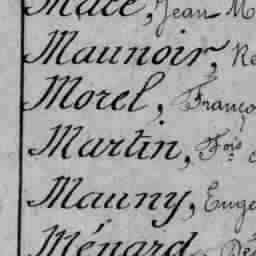 Macé, Jean M
Maunoir, Re
Morel, Franço
Martin, Fois
Mauny, Euge
Ménard, Dé